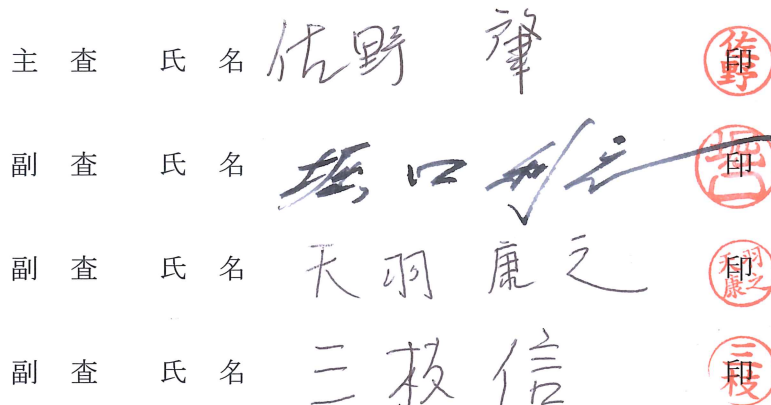 主査 氏名 佐野 肇 印
副査 氏名 堀口 印
副査 氏名 天羽康之 印
副査 氏名 三枝信 印